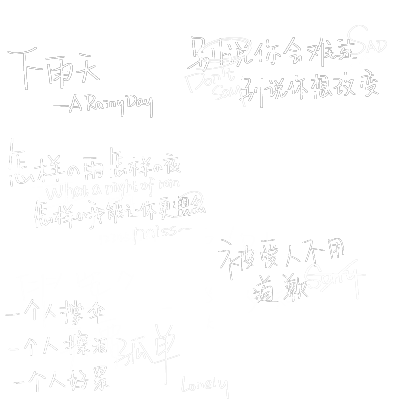 下雨天
—A Rainy Day
别说你会难过
SAD
Don't
Say
别说你想改变
怎样的雨 怎样的夜
What a night of rain
怎样的我能让你更想念
miss—
被爱人不用
道歉
一个人撑伞
一个人擦泪
一个人好累
孤单
Lonely